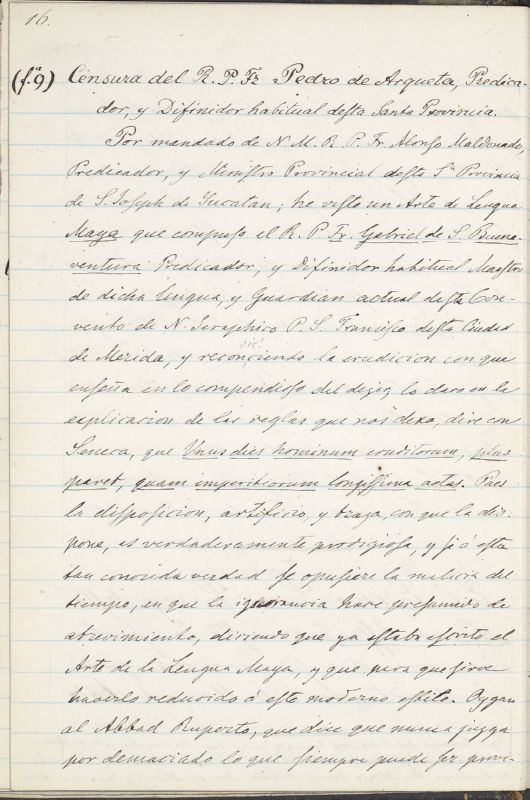 16.
(f.ª 9) Censura del R. P. Fr Pedro de Arqueta, Predica-
dor, y Difinidor habitual desta Santa Provincia.
Por mandado de N. M. R. P. Fr. Alonso Maldonado,
Predicador, y Ministro Provincial desta Sª Provincia
de S. Joseph de Yucatan; he visto un Arte de Lengua
Maya que compuso el R. P. Fr. Gabriel de S. Buena-
ventura Predicador, y Difinidor habitual Maestro
de dicha lengua, y Guardian actual desta Con-
vento de N. Seraphico P. S. Francisco desta Ciudad
sic!
de Merida, y reconciendo la erudicion con que
enseña in lo compendioso del dezir lo claro en la
explicacion de las reglas que nos dexa, dire con
Seneca, que Unus dies hominum eruditorum, plus
paret, quam imperitiorum longissima aetas. Pues
la disposicion, artificio, y traza, con que la dis-
pone, es verdaderamente prodigiosa, y si á esta
tan conocida verdad se opusiere la malicia del
tiempo, en que la ignorancia hace presumido de
atrevimiento, diciendo que ya estaba escrito el
Arte de la Lengua Maya, y que para que sirve
haverlo reducido á este moderno estilo. Oygan
al Abbad Ruperto, que dice que nunca juzga
por demaciado lo que siempre puede ser prove-